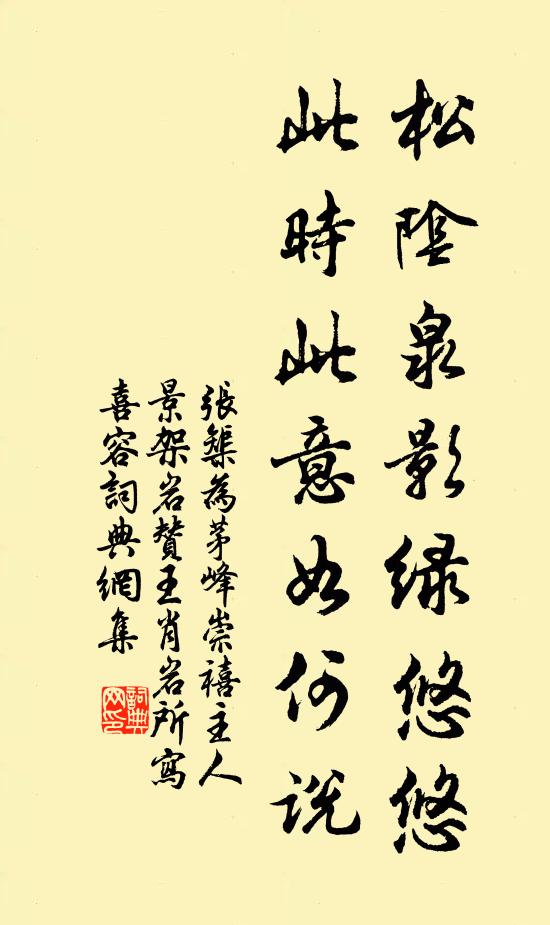 松陰泉影綠悠悠
此時此意如何說
張榘為茅峰崇禧主人
景架岩贊王肖岩所寫
喜容詞典網集
詞典網印